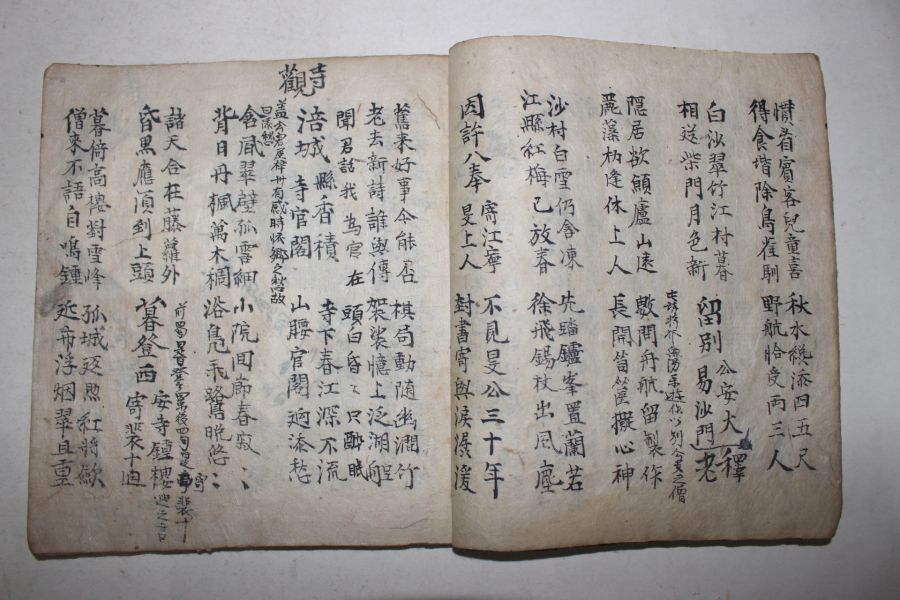 慣看賓客兒童喜
得食堦除鳥雀馴
秋水纔添四五尺
野航恰受両三人
白沙翠竹江村暮
相送柴門月色新
留別公安大易沙門
釋
老
隱居欲頠廬山遠
麗藻初逢休上人
數問舟航留製作
長開笥篋擬心神
沙村白雪仍含凍
江縣紅梅已放春
先蹋鑪峯置蘭若
徐飛錫杖出風塵
因許八奉寄江寧旻上人
不見旻公三十年
封書寄與淚潺湲
舊來好事今能否
老去新詩誰與傳
棋局動随幽澗竹
袈裟憶上泛湖船
聞君話我為官在
頭白昏〻只醉眠
寺觀
涪城縣香積寺官閣
寺下春江深不流
山腰官閣迥添愁
有感時懷鄉之愁故曰添愁
含風翠壁孤雲細
背日丹楓萬木稠
小院回廊春寂〻
浴鳧飛鷺晚悠〻
諸天合在藤蘿外
昏黑應須到上頭
暮登西安寺鐘樓寄裴十迪
暮倚高樓對雪峰
僧來不語自鳴鐘
孤城返照紅將斂
近市浮烟翠且重